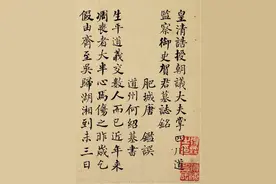 皇清誥授朝議大夫掌四川道
監察御史賀君墓誌銘
肥城唐鑑譔
道州何紹基書
生平道義交數人而已近年来
凋喪者大半心焉傷之昨歲乞
假由齊至吴歸湖湘到未三日